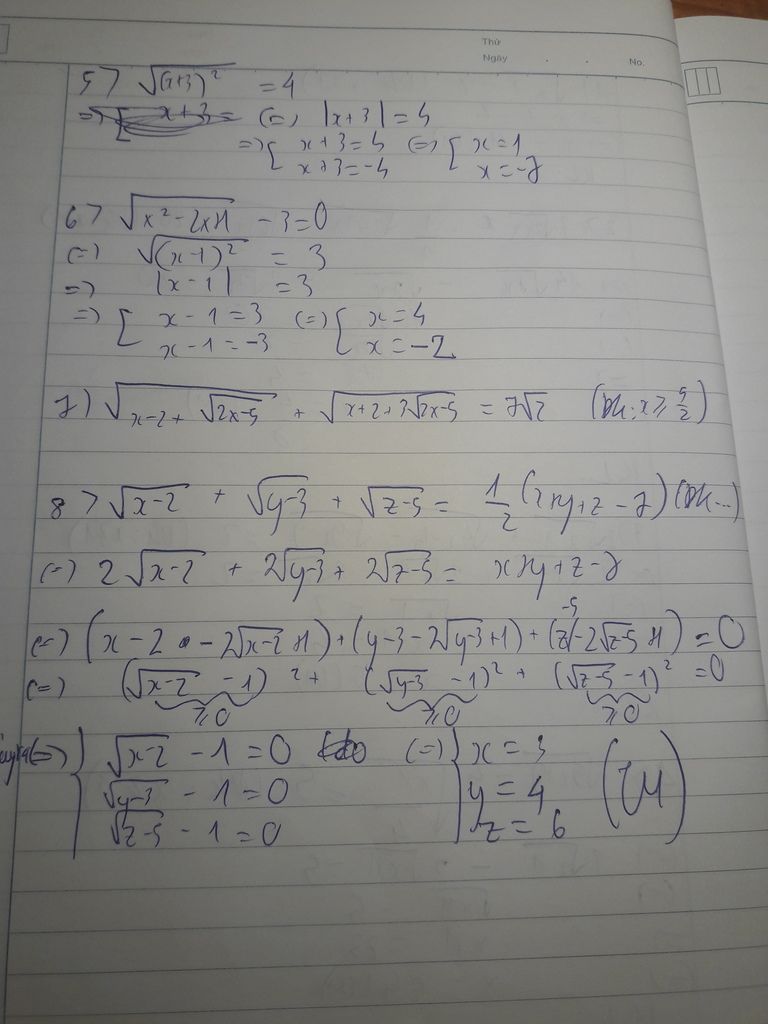 Thứ
Ngày . . No.
5> √(x+3)² = 4
=> [ x+3 = (=) |x+3| = 4
=> [ x+3=4 (=) [ x=1
x+3=-4 x=-7
6> √x²-2x+1 - 3=0
(=) √(x-1)² = 3
=> |x-1| = 3
=> [ x-1=3 (=) [ x=4
x-1=-3 x=-2
7) √x-2+√2x-5 + √x+2+3√2x-5 = 7√2 (ĐK: x≥ 5/2)
8> √x-2 + √y-3 + √z-5 = 1/2 (x+y+z-7) (ĐK...)
(=) 2√x-2 + 2√y-3 + 2√z-5 = x+y+z-7
(=) (x-2 -2√x-2+1)+(y-3-2√y-3+1)+(z-5-2√z-5+1) =0
(=) (√x-2 -1)²+ (√y-3 -1)²+ (√z-5-1)² =0
≥0 ≥0 ≥0
(=) { √x-2 -1=0 (=) { x=3
√y-3 -1=0 y=4 (TM)
√z-5 -1=0 z=6